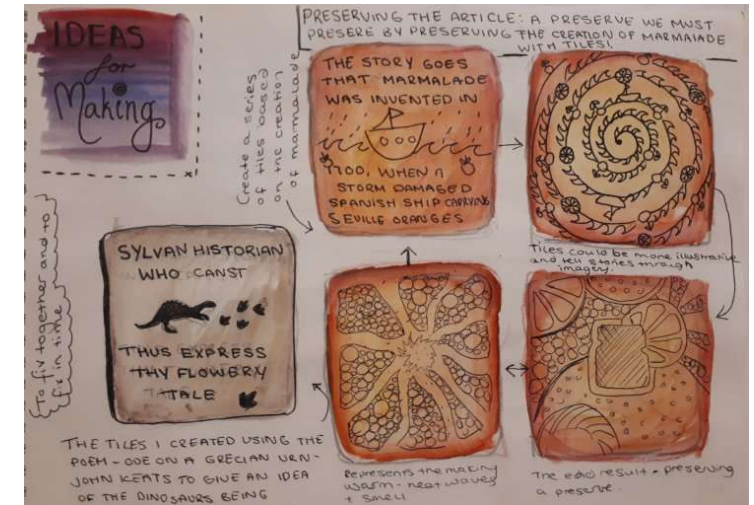 IDEAS
for
Making
PRESERVING THE ARTICLE: A PRESERVE WE MUST
PRESERE BY PRESERVING THE CREATION OF MARMALADE
WITH TILES!
Create a series
of tiles based
on the creation
of marmalade
THE STORY GOES
THAT MARMALADE
WAS INVENTED IN
1700, WHEN A
STORM DAMAGED
SPANISH SHIP CARRYING
SEVILLE ORANGES
Tiles could be more illustrative
and tell stories through
imagery.
To fix together and to
fix in time
SYLVAN HISTORIAN
WHO CANST
THUS EXPRESS
THY FLOWERY
TALE
THE TILES I CREATED USING THE
POEM - ODE ON A GRECIAN URN-
JOHN KEATS TO GIVE AN IDEA
OF THE DINOSAURS BEING
Represents the making
warm - heat waves
+ smell
The end result - preserving
a preserve.